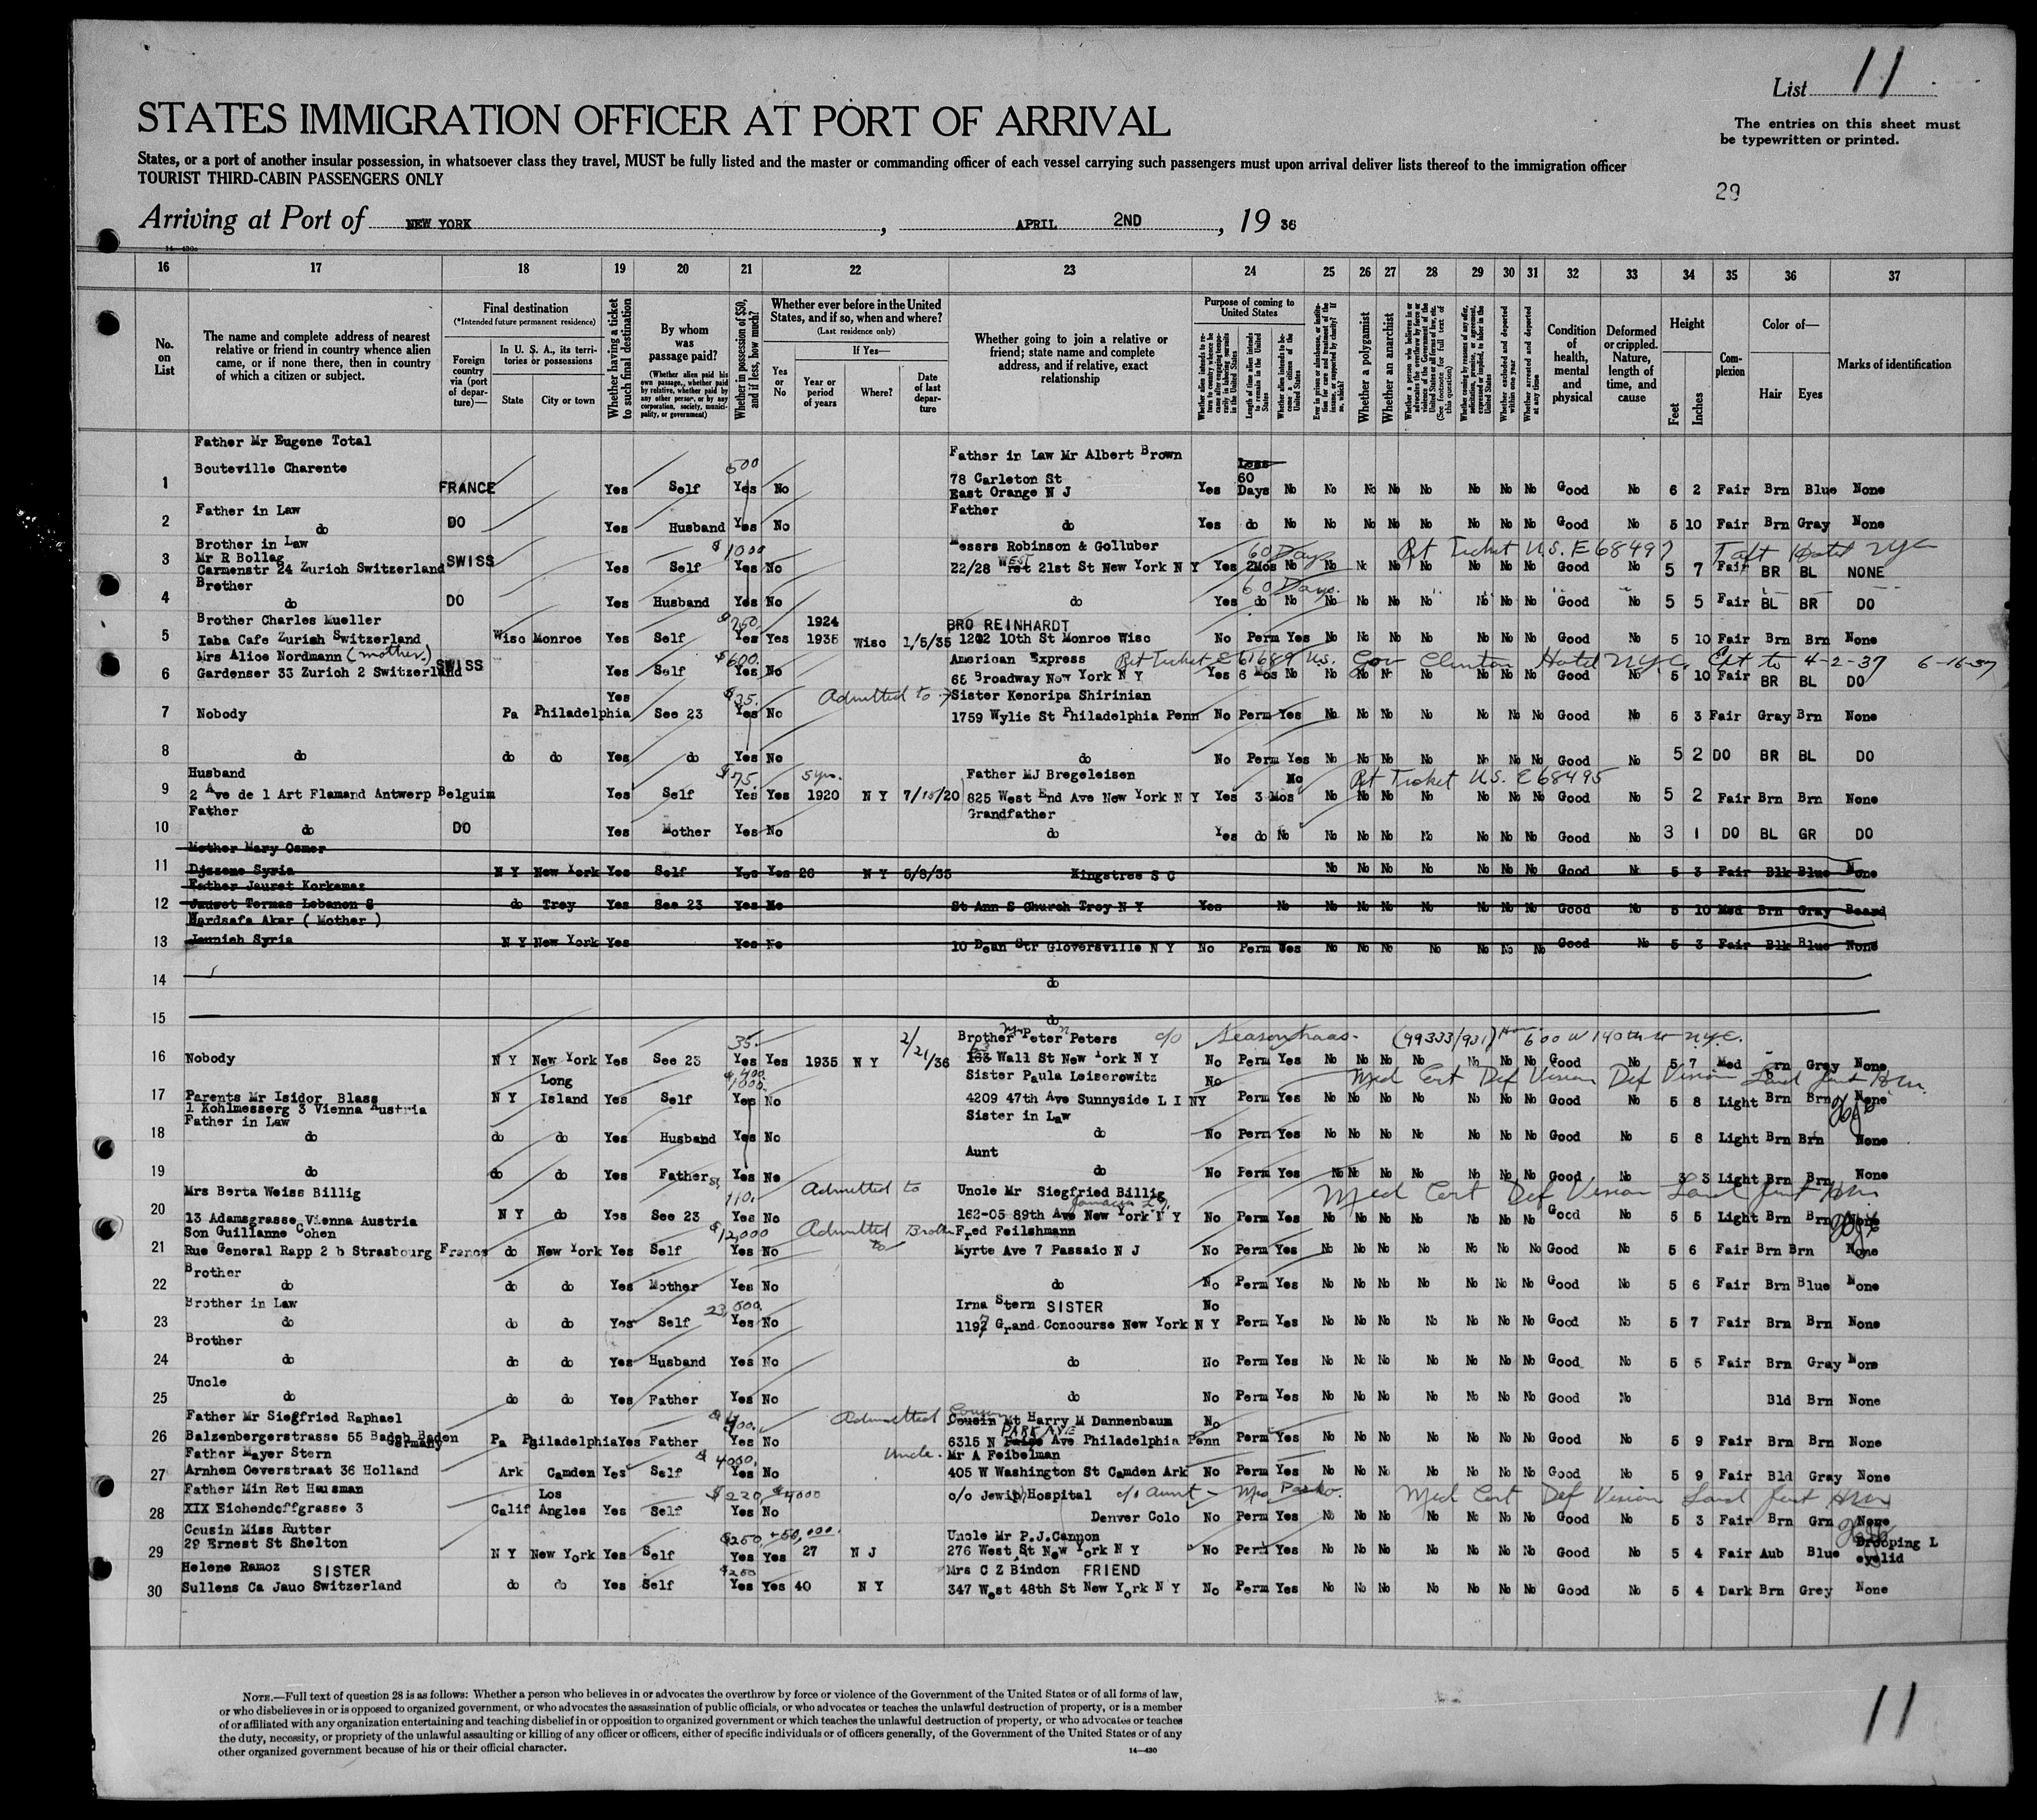 List 11
STATES IMMIGRATION OFFICER AT PORT OF ARRIVAL
The entries on this sheet must
be typewritten or printed.
States, or a port of another insular possession, in whatsoever class they travel, MUST be fully listed and the master or commanding officer of each vessel carrying such passengers must upon arrival deliver lists thereof to the immigration officer
TOURIST THIRD-CABIN PASSENGERS ONLY
29
Arriving at Port of NEW YORK, APRIL 2ND, 19 36
16 17 18 19 20 21 22 23 24 25 26 27 28 29 30 31 32 33 34 35 36 37
No. on List
The name and complete address of nearest relative or friend in country whence alien came, or if none there, then in country of which a citizen or subject.
Final destination
(*Intended future permanent residence)
Foreign country via (port of departure)—
In U. S. A., its territories or possessions
State City or town
Whether having a ticket to such final destination
By whom was passage paid?
(Whether alien paid his own passage, whether paid by relative, whether paid by any other person, or by any corporation, society, municipality, or government)
Whether in possession of $50, and if less, how much?
Whether ever before in the United States, and if so, when and where?
(Last residence only)
Yes or No
If Yes—
Year or period of years Where? Date of last departure
Whether going to join a relative or friend; state name and complete address, and if relative, exact relationship
Purpose of coming to United States
Length of time alien intends to remain in the United States
Whether alien intends to become a citizen of the United States
Whether a polygamist
Whether an anarchist
(See footnote for full text of this question)
Whether excluded and deported within one year
Whether arrested and deported at any time
Condition of health, mental and physical
Deformed or crippled. Nature, length of time, and cause
Height
Feet Inches
Complexion
Color of—
Hair Eyes
Marks of identification
Father Mr Eugene Total Father in Law Mr Albert Brown
Bouteville Charente 500 78 Carleton St 60
1 FRANCE Yes Self Yes No East Orange N J Yes Days No No No No No No No No Good No 6 2 Fair Brn Blue None
Father in Law Father
2 do DO Yes Husband Yes No do Yes do No No No No No No No No Good No 5 10 Fair Brn Gray None
Brother in Law $1000 Messrs Robinson & Golluber 60 Days Ret Ticket U.S. E68497 Taft Hotel NYC
3 Mr R Bollag
Carmenstr 24 Zurich Switzerland SWISS Yes Self Yes No 22/28 WEST 21st St New York N Y Yes 2Mos No No No No No No No No Good No 5 7 Fair BR BL NONE
Brother 60 Days.
4 do DO Yes Husband Yes No do Yes do No No No No No No No No Good No 5 5 Fair BL BR DO
Brother Charles Mueller 1924 BRO REINHARDT
5 Iaba Cafe Zurich Switzerland Wisc Monroe Yes Self Yes Yes 1935 Wisc 1/5/35 1202 10th St Monroe Wisc No Perm Yes No No No No No No No Good No 5 10 Fair Brn Brn None
Mrs Alice Nordmann (mother) $600. American Express Ret Ticket E61689 U.S. Gov Clinton Hotel N.Y.C. Ext to 4-2-37 6-16-37
6 Gardenser 33 Zurich 2 Switzerland SWISS Yes Self Yes No 65 Broadway New York N Y Yes 6 Mos No No No No No No No No Good No 5 10 Fair BR BL DO
Yes $35. Admitted to Sister Kenoripa Shirinian
7 Nobody Pa Philadelphia See 23 Yes No 1759 Wylie St Philadelphia Penn No Perm Yes No No No No No No No Good No 5 3 Fair Gray Brn None
8 do do do Yes do Yes No do No Perm Yes No No No No No No No Good No 5 2 DO BR BL DO
Husband $75. 5 yrs. Father MJ Bregeleisen No Ret Ticket U.S. E68495
9 2 Ave de l Art Flamand Antwerp Belguim Yes Self Yes Yes 1920 N Y 7/15/20 825 West End Ave New York N Y Yes 3 Mos No No No No No No No Good No 5 2 Fair Brn Brn None
Father Grandfather
10 do DO Yes Mother Yes No do Yes do No No No No No No No No Good No 3 1 DO BL GR DO
Mother Mary Osmer
11 Djezene Syria N Y New York Yes Self Yes Yes 26 N Y 5/8/35 Kingstree S C No No No No No No No Good No 5 3 Fair Blk Blue None
Father Jauret Korkemaz
12 Jauset Termas Lebanon S do Troy Yes See 23 Yes No St Ann S Church Troy N Y Yes No No No No No No No No Good No 5 10 Med Brn Gray Beard
Hardsafa Akar ( Mother )
13 Jounieh Syria N Y New York Yes Yes No 10 Dean Str Gloversville N Y No Perm Yes No No No No No No No Good No 5 3 Fair Blk Blue None
14 do
15 do
35. 2/21/36 Brother Peter Peters c/o (99333/931) 600 W 140th St N.Y.C.
16 Nobody N Y New York Yes See 23 Yes Yes 1935 N Y Wall St New York N Y No Perm Yes No No No No No No No Good No 5 7 Med Brn Grey None
Long 1000. Sister Paula Leiserowitz No Med Cert Def Vision Def Vision
17 Parents Mr Isidor Blass N Y Island Yes Self Yes No 4209 47th Ave Sunnyside L I NY Perm Yes No No No No No No No Good No 5 8 Light Brn Brn None
1 Kohlmesserg 3 Vienna Austria
Father in Law Sister in Law
18 do do do Yes Husband Yes No do No Perm Yes No No No No No No No Good No 5 8 Light Brn Brn None
Aunt
19 do do do Yes Father Yes No do No Perm Yes No No No No No No No Good No 3 3 Light Brn Brn None
Mrs Berta Weiss Billig 110. Admitted to Uncle Mr Siegfried Billig Jamaica L.I. Med Cert Def Vision
20 13 Adamsgrasse Vienna Austria N Y do Yes See 23 Yes No 162-05 89th Ave New York N Y No Perm Yes Good No 5 5 Light Brn Brn None
Son Guillanne Cohen $12,000 Admitted to Brother Fred Feilshmann
21 Rue General Rapp 2 b Strasbourg France do New York Yes Self Yes No Myrte Ave 7 Passaic N J No Perm Yes No No No No No No No Good No 5 6 Fair Brn Brn None
Brother
22 do do do Yes Mother Yes No do No Perm Yes No No No No No No No Good No 5 6 Fair Brn Blue None
Brother in Law 23,000. Irna Stern SISTER No
23 do do do Yes Self Yes No 1197 Grand Concourse New York N Y Perm Yes No No No No No No No Good No 5 7 Fair Brn Brn None
Brother
24 do do do Yes Husband Yes No do No Perm Yes No No No No No No No Good No 5 5 Fair Brn Gray None
Uncle
25 do do do Yes Father Yes No do No Perm Yes No No No No No No No Good No Bld Brn None
Father Mr Siegfried Raphael Admitted Cousin Mr Harry M Dannenbaum No
26 Balzenbergerstrasse 55 Baden Baden Germany Pa Philadelphia Yes Father Yes No 6315 N PARK AVE Ave Philadelphia Penn Perm Yes No No No No No No No Good No 5 9 Fair Brn Brn None
Father Mayer Stern 4000. Uncle. Mr A Feibelman
27 Arnhem Oeverstraat 36 Holland Ark Camden Yes Self Yes No 405 W Washington St Camden Ark No Perm Yes No No No No No No No Good No 5 9 Fair Bld Gray None
Father Min Ret Hausman Los $220, $4000 c/o Jewish Hospital c/o Aunt - Mrs Med Cert Def Vision
28 XIX Eichendoffgrasse 3 Calif Angles Yes Self Yes No Denver Colo No Perm Yes No No No No No No No Good No 5 3 Fair Brn Grn None
Cousin Miss Rutter $250, +50,000. Uncle Mr P.J.Cannon
29 29 Ernest St Shelton N Y New York Yes Self Yes Yes 27 N J 276 West St New York N Y No Perm Yes No No No No No No No Good No 5 4 Fair Aub Blue Drooping L eyelid
Helene Ramoz SISTER $250 Mrs C Z Bindon FRIEND
30 Sullens Ca Jauo Switzerland do do Yes Self Yes Yes 40 N Y 347 West 48th St New York N Y No Perm Yes No No No No No No No Good No 5 4 Dark Brn Grey None
NOTE.—Full text of question 28 is as follows: Whether a person who believes in or advocates the overthrow by force or violence of the Government of the United States or of all forms of law,
or who disbelieves in or is opposed to organized government, or who advocates the assassination of public officials, or who advocates or teaches the unlawful destruction of property, or is a member
of or affiliated with any organization entertaining and teaching disbelief in or opposition to organized government or which teaches the unlawful destruction of property, or who advocates or teaches
the duty, necessity, or propriety of the unlawful assaulting or killing of any officer or officers, either of specific individuals or of officers generally, of the Government of the United States or of any
other organized government because of his or their official character.
14—430
11